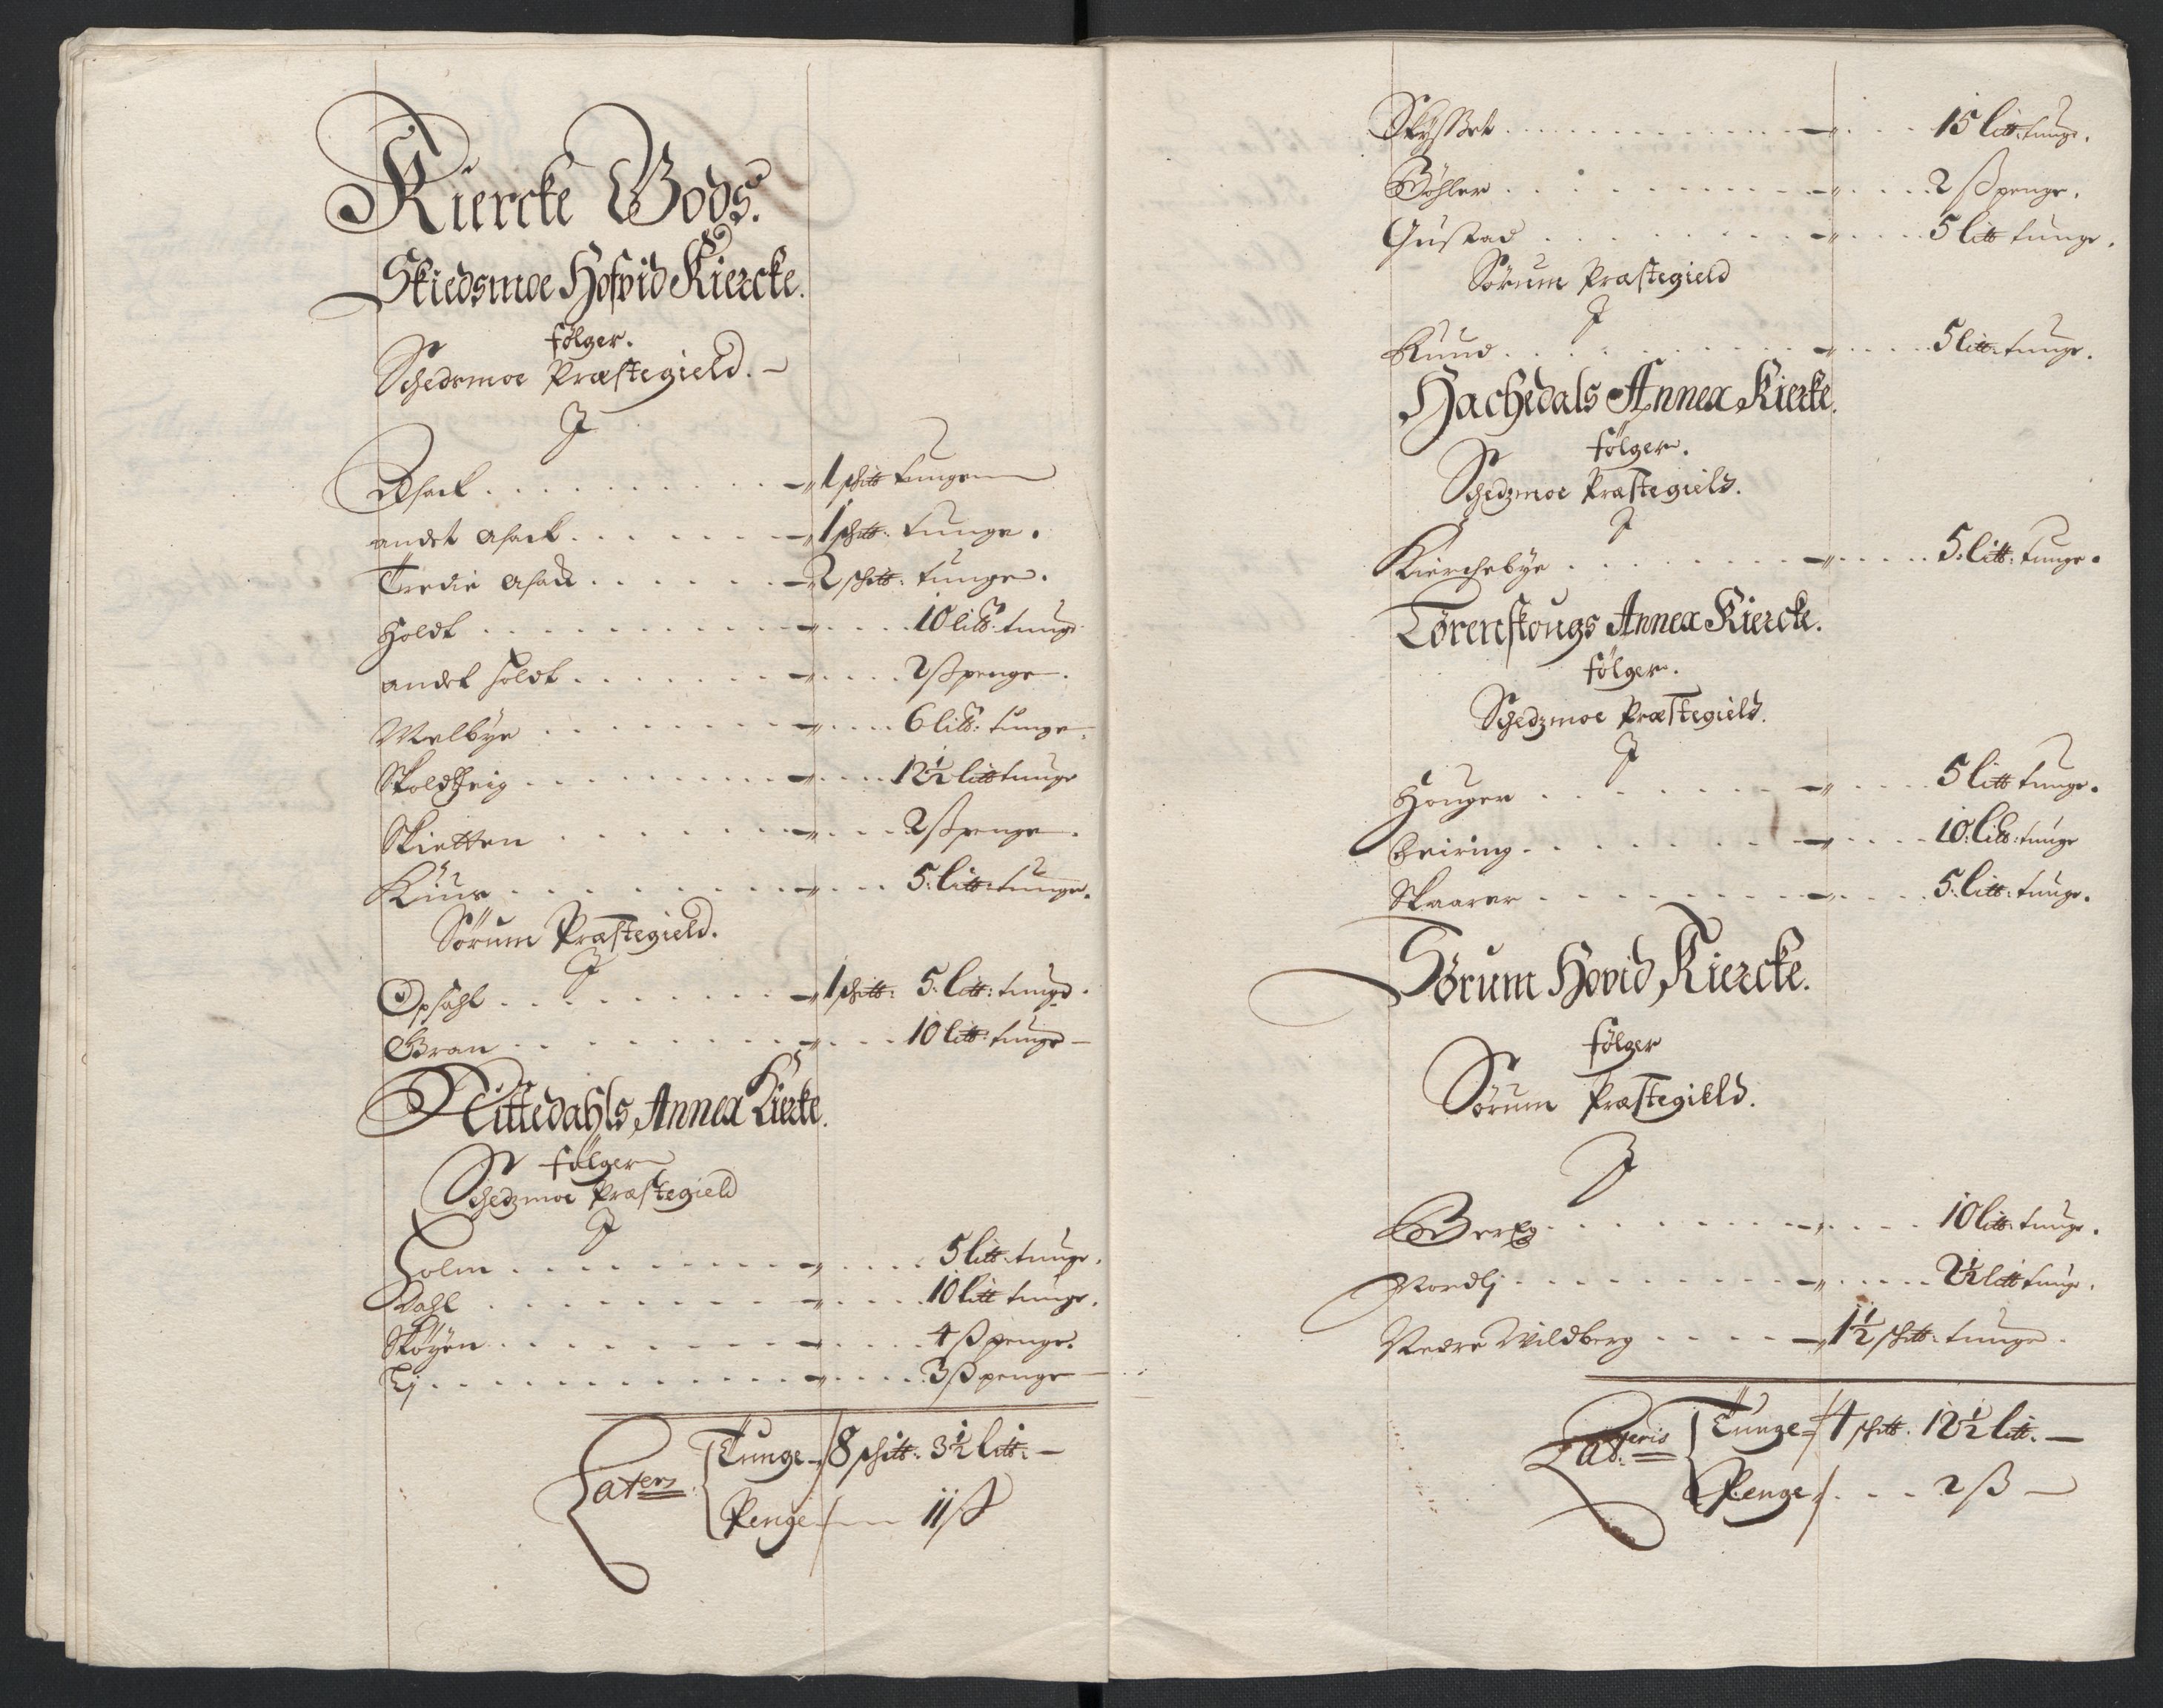 Kiercke Gods.
Skiedsmoe Hofvid Kiercke.
følger.
Schedsmoe Præstegield. —
J
Asack . . . . . . . . . . — 1 sch℔ tungen
andet Asack . . . . . . . — 1 sch℔: tunge.
Tredie Asack . . . . . . — 2 sch℔: tunge.
Holdt . . . . . . . . . . — . . . 10 li℔: tunge
andet holdt . . . . . . . — . . . 2 ß penge.
Melbye . . . . . . . . — . . . 6 li℔: tunge.
Skoldhrig . . . . . . . . — . . . 12½ litt tunge
Skietten . . . . . . . . — . . . 2 ß penge.
Kius . . . . . . . . . — . . . 5. litt: tunge.
Sørum Præstegield.
J
Opsahl . . . . . . . . . — 1 sch℔: 5. litt: tunge.
Gran . . . . . . . . . . — . . . 10 litt: tunge —
Nittedahls Annex Kiercke.
følger
Schedzmoe Præstegield
J
Holm . . . . . . . . . — . . . 5 litt: tunge.
Dahl . . . . . . . . . — . . . 10 litt tunge.
Skøyen . . . . . . . . — . . . 4 ß penge.
Ej . . . . . . . . . . . — . . . 3 ß penge —
Laters. Tunge — 8 schitt: 3½ litt: —
Penge — 11 ß
Skysset . . . . . . . . . . — . . . 15 litt: tunge.
Bøhler . . . . . . . . . — . . . 2 ß penge.
Gustad . . . . . . . . — . . . 5 litt tunge.
Sørum Præstegield
J
Ruud . . . . . . . . . — . . . 5 litt: tunge.
Hachedals Annex Kiercke.
følger.
Schedzmoe Præstegield.
J
Kierchebye . . . . . . . — . . . 5. litt: tunge.
Lørenskougs Annex Kiercke.
følger.
Schedzmoe Præstegield.
J
Houger . . . . . . . — . . . 5 litt tunge.
Feiring . . . . . . . . — . . . 10. li℔: tunge
Skaarer . . . . . . . . — . . . 5. litt: tunge.
Sørum Hovid Kiercke.
følger
Sørum Præstegield.
J
Berg . . . . . . . . — . . . 10 litt: tunge.
Nordlj . . . . . . . . — . . . 2½ litt tunge.
Nedre Wildberg . . . . — 1½ schitt: tunge.
Lateris Tunge — 4 schitt. 12½ litt. —
Penge . . . 2 ß —